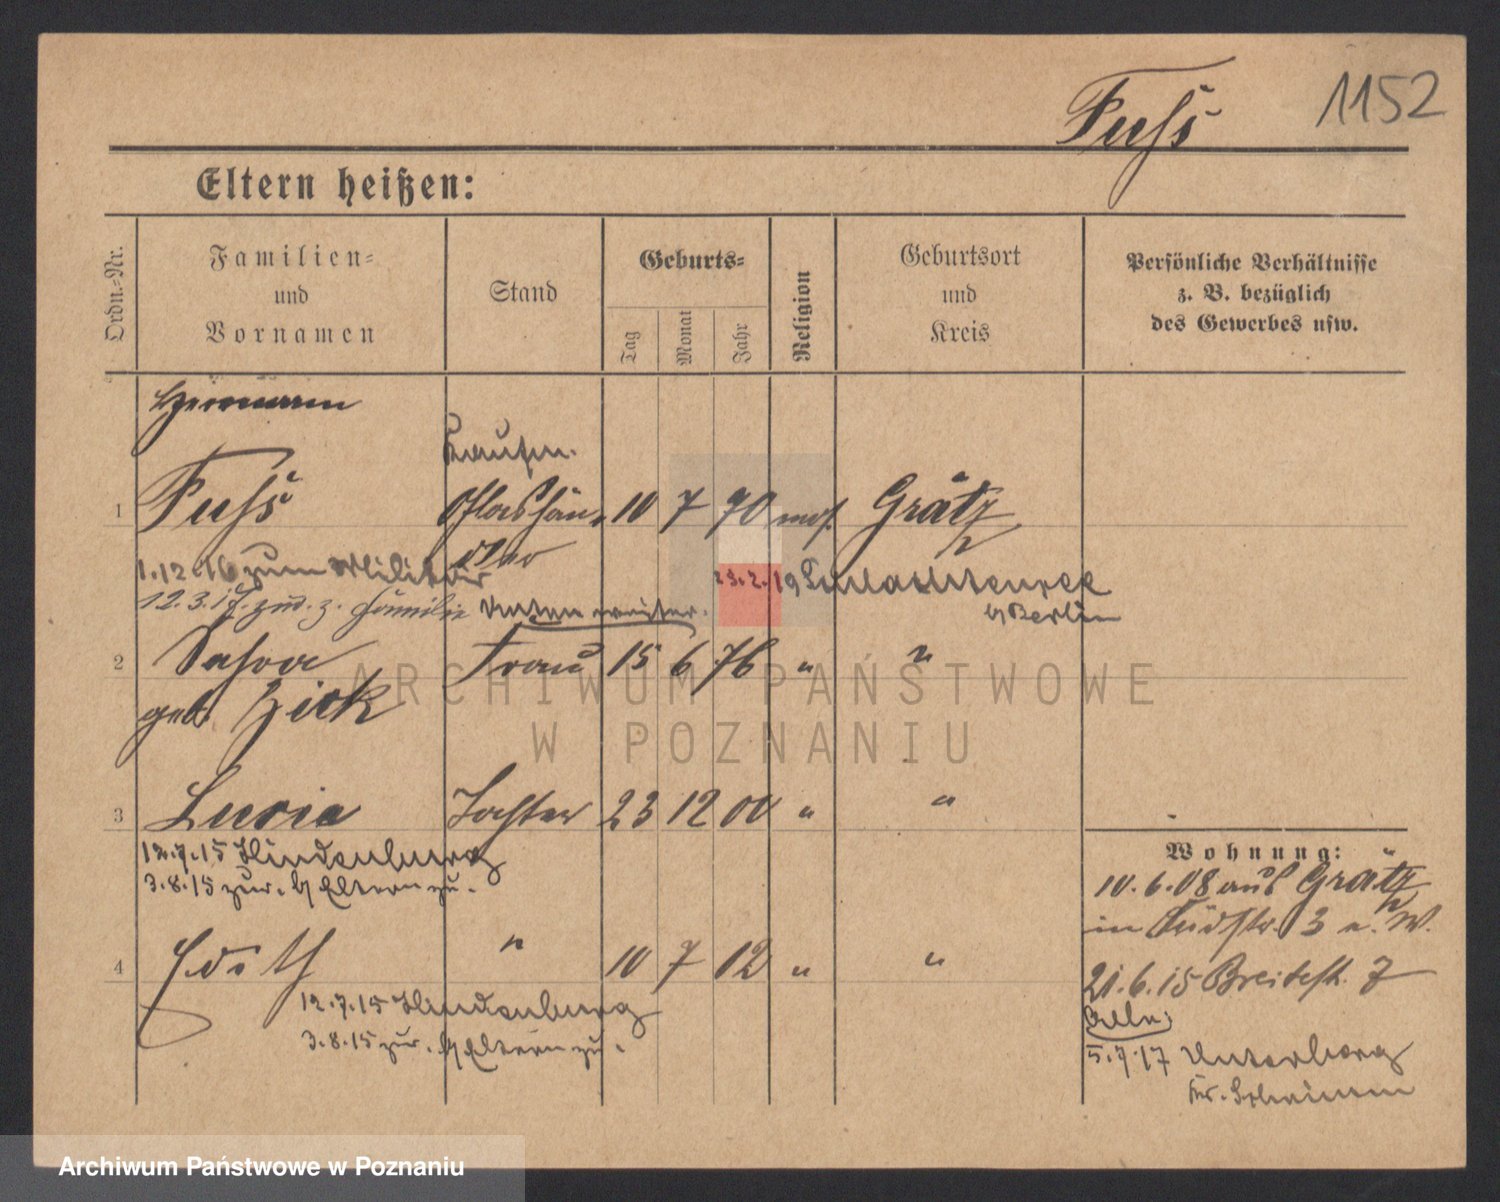 Fuss 1152
Eltern heißen:
Ordn.=Nr.
Familien=
und
Vornamen
Stand
Geburts=
Tag
Monat
Jahr
Religion
Geburtsort
und
Kreis
Persönliche Verhältnisse
z. B. bezüglich
des Gewerbes usw.
Hermann
Kaufm.
1 Fuss Glashän= 10 7 70 mos. Grätz
dler
1.12.16 zum Militär 23.2.19 Schlachtensee
12.3.17. zur. z. Familie Unten weiter. b/ Berlin
2 Frau 15 6 76 " "
geb.
3 Lucie Tochter 23 12 00 " "
12.7.15 Hindenburg
3.8.15 zur. b/ Eltern zu.
4 Edith " 10 7 02 " "
12.7.15 Hindenburg
3.8.15 zur. b/ Eltern zu.
Wohnung:
10.6.08 aus Grätz
in 3 u. W.
21.6.15 Breitestr. 7
Alle:
5.7.17 Unterberg
Kr. Schrimm
ARCHIWUM PAŃSTWOWE
W POZNANIU
Archiwum Państwowe w Poznaniu